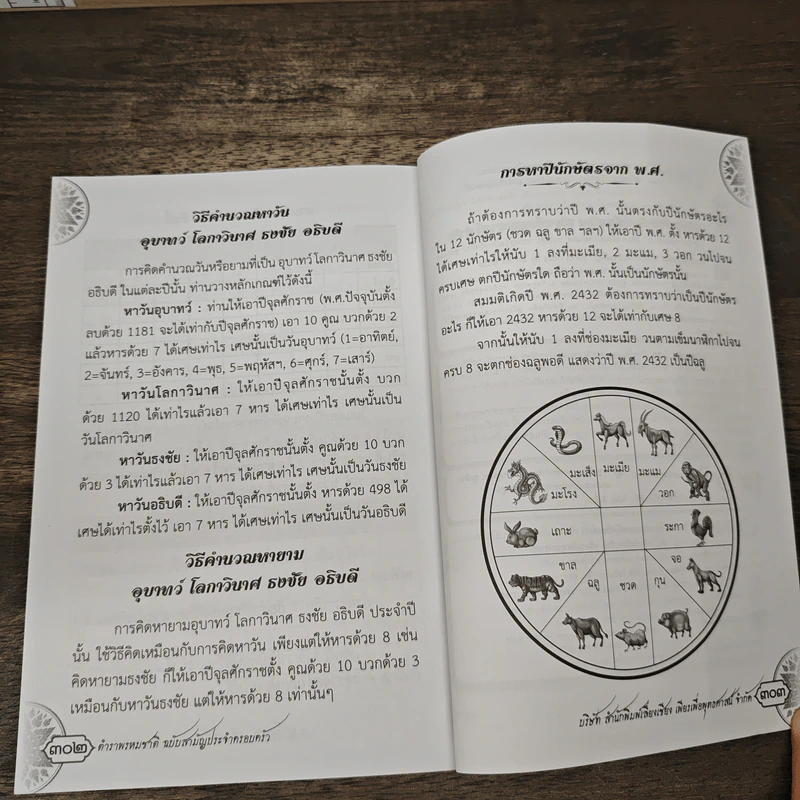 วิธีคำนวณหาวัน
อุบาทว์ โลกาวินาศ ธงชัย อธิบดี
การคิดคำนวณวันหรือยามที่เป็น อุบาทว์ โลกาวินาศ ธงชัย
อธิบดี ในแต่ละปีนั้น ท่านวางหลักเกณฑ์ไว้ดังนี้
หาวันอุบาทว์ : ท่านให้เอาปีจุลศักราช (พ.ศ.ปัจจุบันตั้ง
ลบด้วย 1181 จะได้เท่ากับปีจุลศักราช) เอา 10 คูณ บวกด้วย 2
แล้วหารด้วย 7 ได้เศษเท่าไร เศษนั้นเป็นวันอุบาทว์ (1=อาทิตย์,
2=จันทร์, 3=อังคาร, 4=พุธ, 5=พฤหัสฯ, 6=ศุกร์, 7=เสาร์)
หาวันโลกาวินาศ : ให้เอาปีจุลศักราชนั้นตั้ง บวก
ด้วย 1120 ได้เท่าไรแล้วเอา 7 หาร ได้เศษเท่าไร เศษนั้นเป็น
วันโลกาวินาศ
หาวันธงชัย : ให้เอาปีจุลศักราชนั้นตั้ง คูณด้วย 10 บวก
ด้วย 3 ได้เท่าไรแล้วเอา 7 หาร ได้เศษเท่าไร เศษนั้นเป็นวันธงชัย
หาวันอธิบดี : ให้เอาปีจุลศักราชนั้นตั้ง หารด้วย 498 ได้
เศษได้เท่าไรตั้งไว้ เอา 7 หาร ได้เศษเท่าไร เศษนั้นเป็นวันอธิบดี
วิธีคำนวณหายาม
อุบาทว์ โลกาวินาศ ธงชัย อธิบดี
การคิดหายามอุบาทว์ โลกาวินาศ ธงชัย อธิบดี ประจำปี
นั้น ใช้วิธีคิดเหมือนกับการคิดหาวัน เพียงแต่ให้หารด้วย 8 เช่น
คิดหายามธงชัย ก็ให้เอาปีจุลศักราชตั้ง คูณด้วย 10 บวกด้วย 3
เหมือนกับหาวันธงชัย แต่ให้หารด้วย 8 เท่านั้นๆ
๓๐๒ ตำราพรหมชาติ ฉบับสามัญประจำครอบครัว
การหาปีนักษัตรจาก พ.ศ.
ถ้าต้องการทราบว่าปี พ.ศ. นั้นตรงกับปีนักษัตรอะไร
ใน 12 นักษัตร (ชวด ฉลู ขาล ฯลฯ) ให้เอาปี พ.ศ. ตั้ง หารด้วย 12
ได้เศษเท่าไรให้นับ 1 ลงที่มะเมีย, 2 มะแม, 3 วอก วนไปจน
ครบเศษ ตกปีนักษัตรใด ถือว่า พ.ศ. นั้นเป็นนักษัตรนั้น
สมมติเกิดปี พ.ศ. 2432 ต้องการทราบว่าเป็นปีนักษัตร
อะไร ก็ให้เอา 2432 หารด้วย 12 จะได้เท่ากับเศษ 8
จากนั้นให้นับ 1 ลงที่ช่องมะเมีย วนตามเข็มนาฬิกาไปจน
ครบ 8 จะตกช่องฉลูพอดี แสดงว่าปี พ.ศ. 2432 เป็นปีฉลู
มะเส็ง
มะเมีย
มะแม
มะโรง
วอก
เถาะ
ระกา
ขาล
ฉลู
ชวด
กุน
จอ
บริษัท สำนักพิมพ์เลี่ยงเชียง เพียรเพื่อพุทธศาสน์ จำกัด ๓๐๓